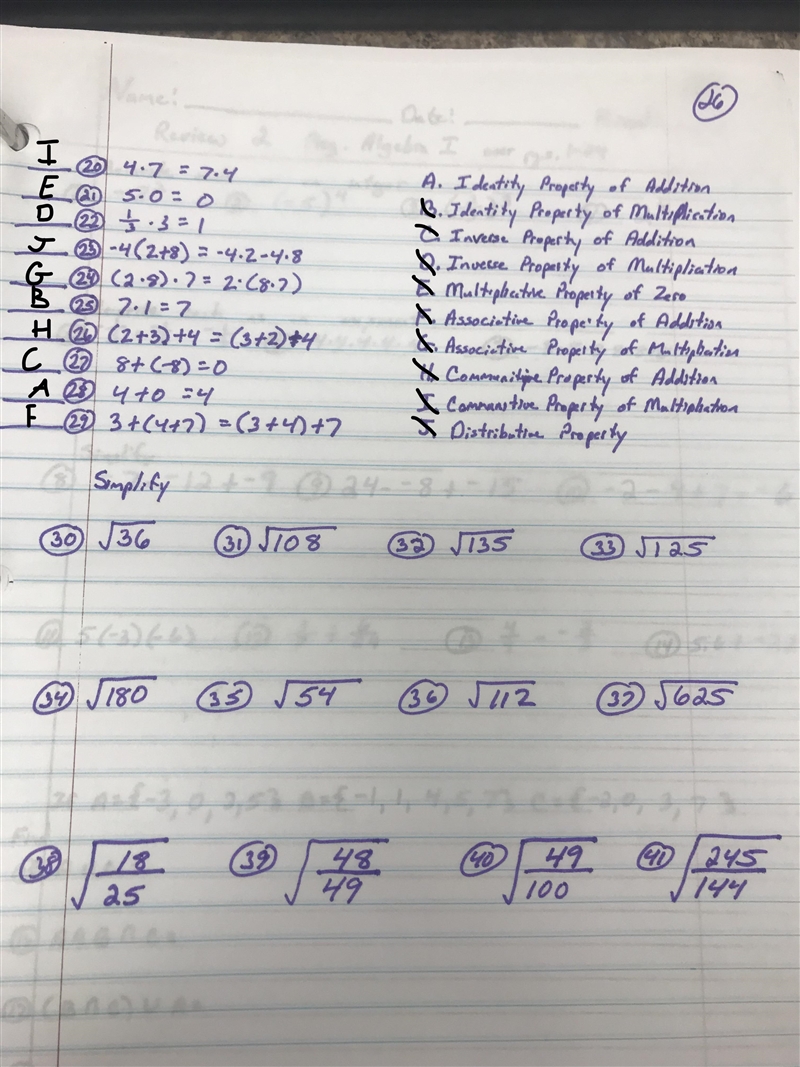 26
Name: Date:
Review 2 Alg. Algebra I over pgs.
I 20 4·7 = 7·4
E 21 5·0 = 0
D 22 1/3 · 3 = 1
J 23 -4(2+8) = -4·2-4·8
G 24 (2·8)·7 = 2·(8·7)
B 25 7·1 = 7
H 26 (2+3)+4 = (3+2)+4
C 27 8+(-8)=0
A 28 4+0 =4
F 29 3+(4+7) =(3+4)+7
A. Identity Property of Addition
B. Identity Property of Multiplication
C. Inverse Property of Addition
D. Inverse Property of Multiplication
E. Multiplicative Property of Zero
F. Associative Property of Addition
G. Associative Property of Multiplication
H. Commutative Property of Addition
I. Commutative Property of Multiplication
J. Distributive Property
Simplify
30 √36 31 √108 32 √135 33 √125
34 √180 35 √54 36 √112 37 √625
38 √18/25 39 √48/49 40 √49/100 41 √245/144